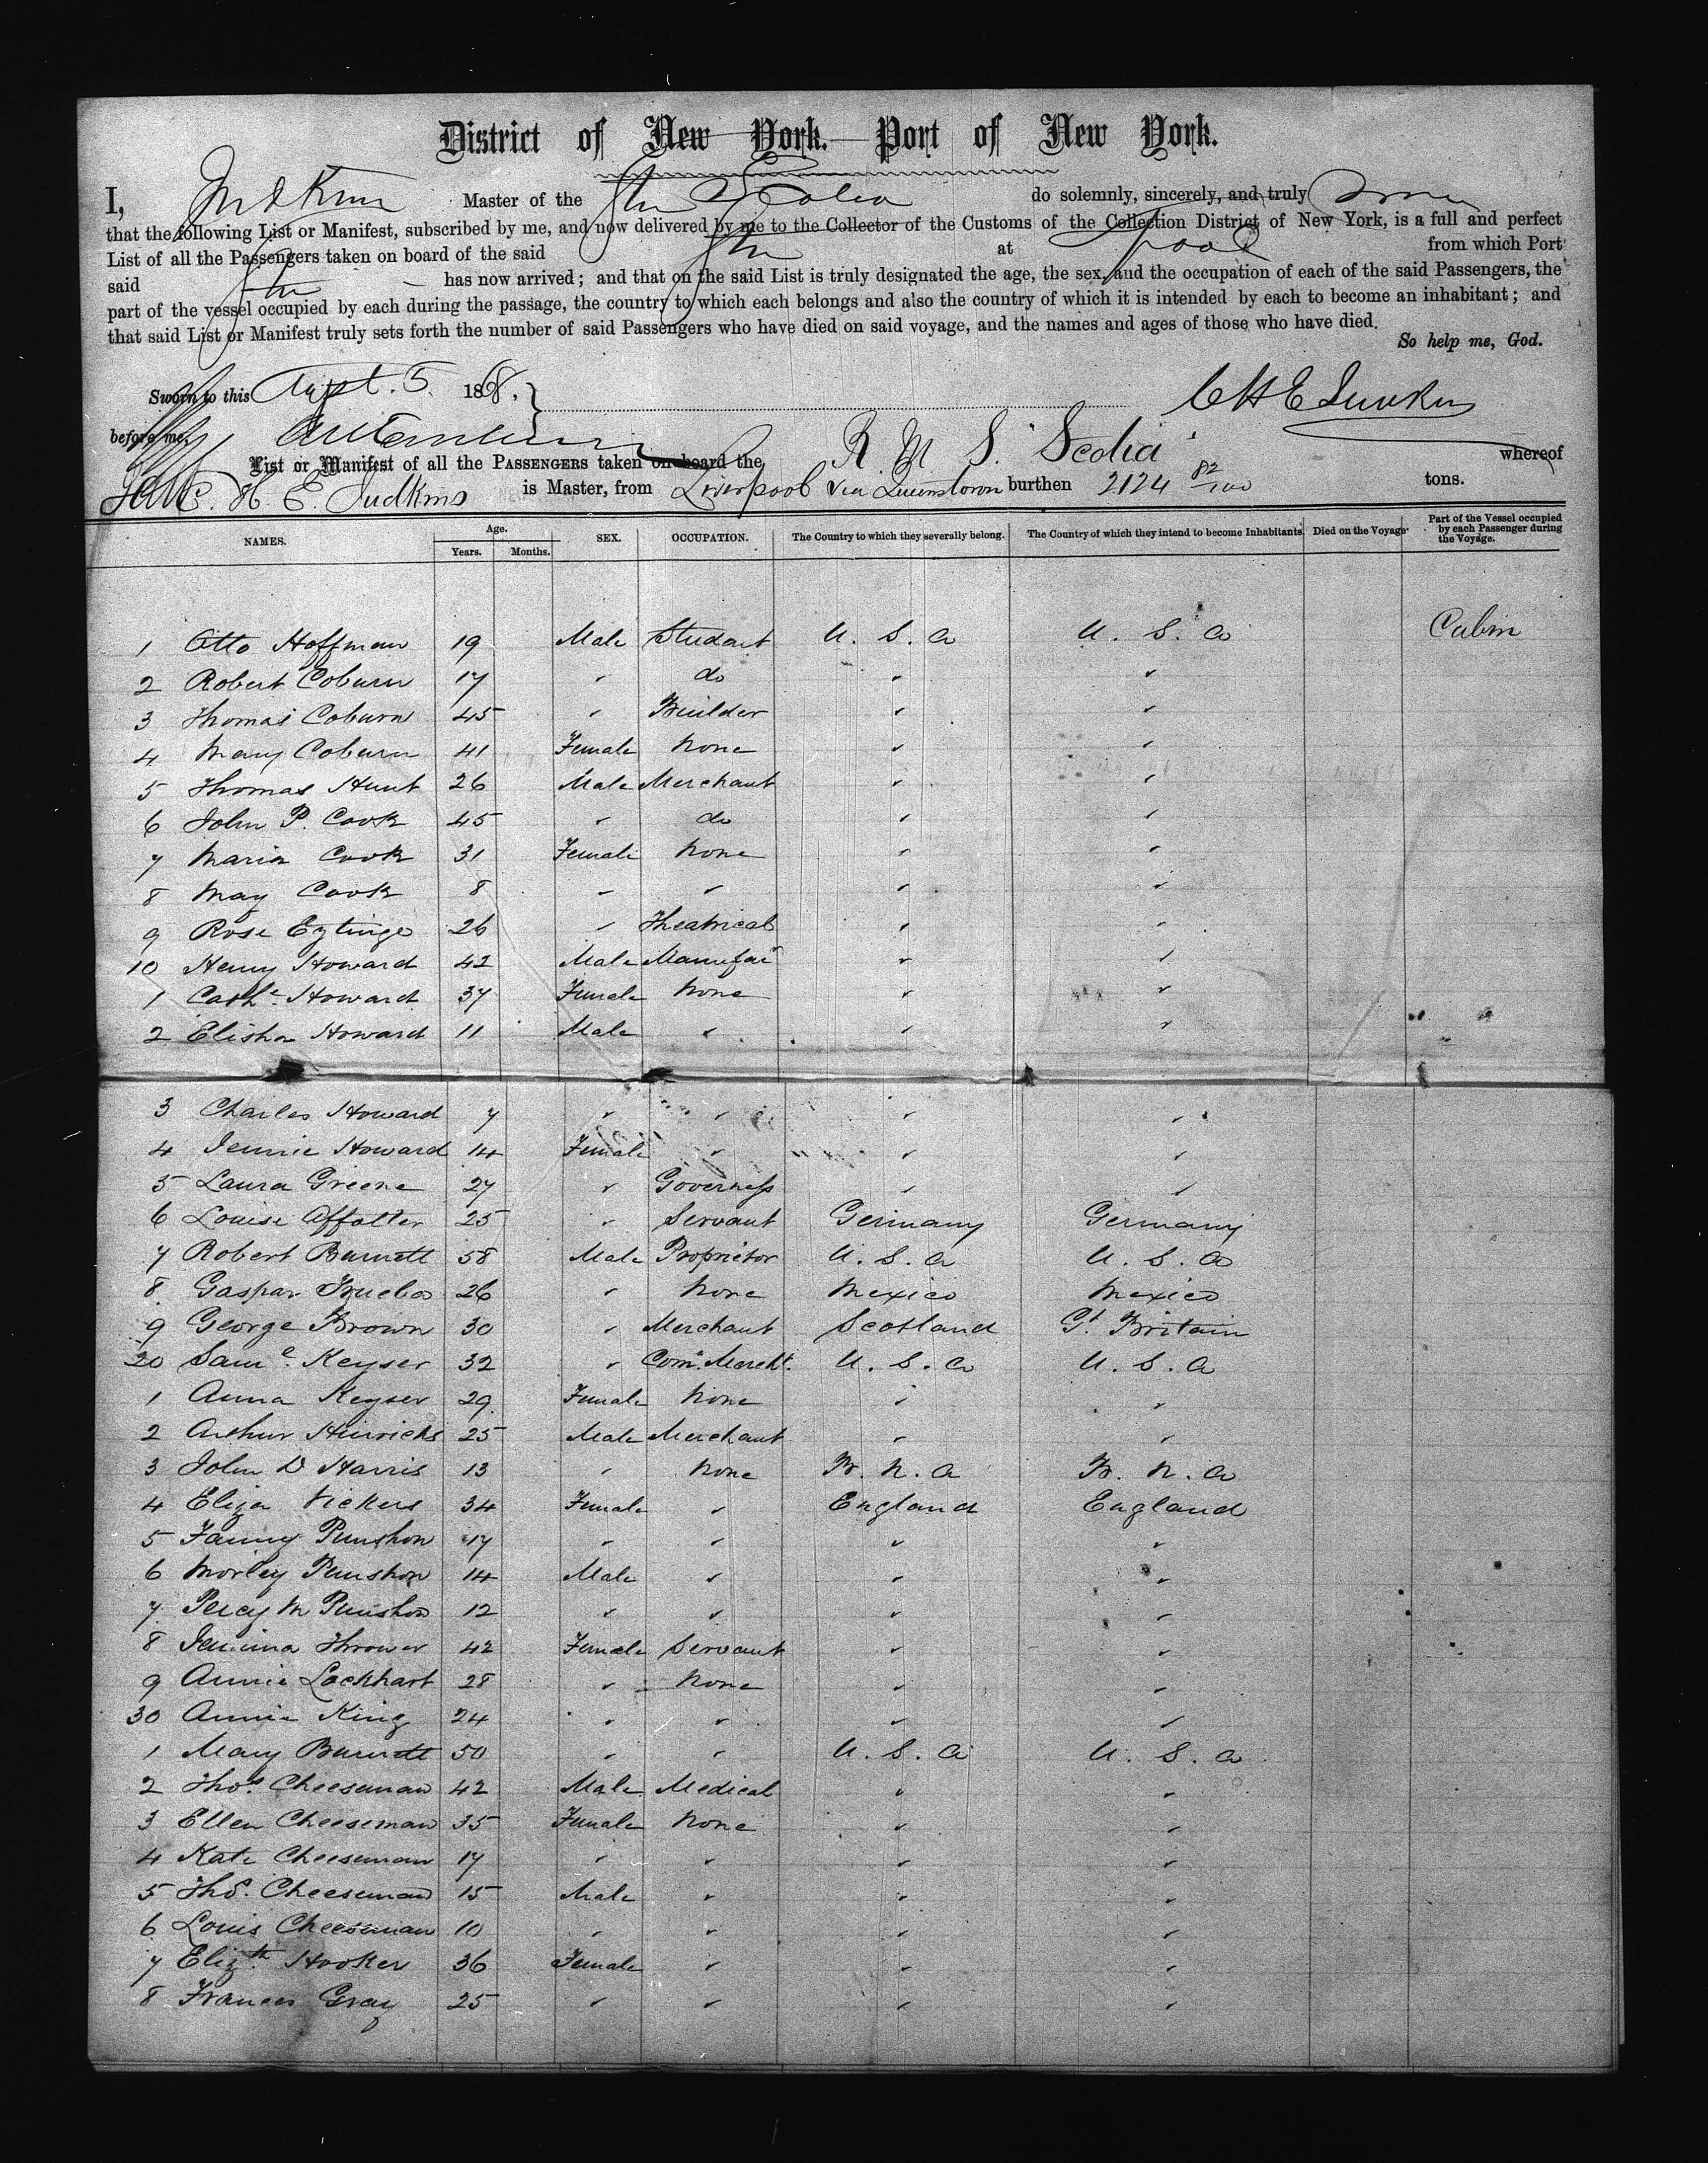 District of New York. Port of New York.
I, Judkins Master of the Str Scotia do solemnly, sincerely, and truly swear
that the following List or Manifest, subscribed by me, and now delivered by me to the Collector of the Customs of the Collection District of New York, is a full and perfect
List of all the Passengers taken on board of the said Str at Lpool from which Port
said Str has now arrived; and that on the said List is truly designated the age, the sex, and the occupation of each of the said Passengers, the
part of the vessel occupied by each during the passage, the country to which each belongs and also the country of which it is intended by each to become an inhabitant; and
that said List or Manifest truly sets forth the number of said Passengers who have died on said voyage, and the names and ages of those who have died.
So help me, God.
Sworn to this Augst. 5 1868. C H E Judkins
before me,
List or Manifest of all the PASSENGERS taken on board the R. M. S. "Scotia" whereof
C. H. E. Judkins is Master, from Liverpool via Queenstown burthen 2124 82/100 tons.
NAMES. Age. Years. Months. SEX. OCCUPATION. The Country to which they severally belong. The Country of which they intend to become Inhabitants. Died on the Voyage. Part of the Vessel occupied by each Passenger during the Voyage.
1 Otto Hoffman 19 Male Student U. S. A U. S. A Cabin
2 Robert Coburn 17 " do " "
3 Thomas Coburn 45 " Builder " "
4 Mary Coburn 41 Female None " "
5 Thomas Hunt 26 Male Merchant " "
6 John P. Cook 45 " do " "
7 Maria Cook 31 Female None " "
8 May Cook 8 " " " "
9 Rose Eytinge 26 " Theatrical " "
10 Henry Howard 42 Male Manufac " "
1 Cathe. Howard 37 Female None " "
2 Elisha Howard 11 Male " " "
3 Charles Howard 7 " " " "
4 Jennie Howard 14 Female " " "
5 Laura Greene 27 " Governess " "
6 Louise Affolter 25 " Servant Germany Germany
7 Robert Burnett 58 Male Proprietor U. S. A U. S. A
8 Gaspar 26 " None Mexico Mexico
9 George Brown 30 " Merchant Scotland Gt. Britain
20 Saml. Keyser 32 " Com. Mercht. U. S. A U. S. A
1 Anna Keyser 29 Female None " "
2 Arthur Hinrichs 25 Male Merchant " "
3 John D Harris 13 " None B. N. A B. N. A
4 Eliza Vickers 34 Female " England England
5 Fanny Punshon 17 " " " "
6 Morley Punshon 14 Male " " "
7 Percy M Punshon 12 " " " "
8 Jemima Thrower 42 Female Servant " "
9 Annie Lockhart 28 " None " "
30 Annie King 24 " " " "
1 Mary Burnett 50 " " U. S. A U. S. A
2 Thos. Cheeseman 42 Male Medical " "
3 Ellen Cheeseman 35 Female None " "
4 Kate Cheeseman 17 " " " "
5 Ths. Cheeseman 15 Male " " "
6 Louis Cheeseman 10 " " " "
7 Elizth. Hooker 36 Female " " "
8 Frances Gray 25 " " " "